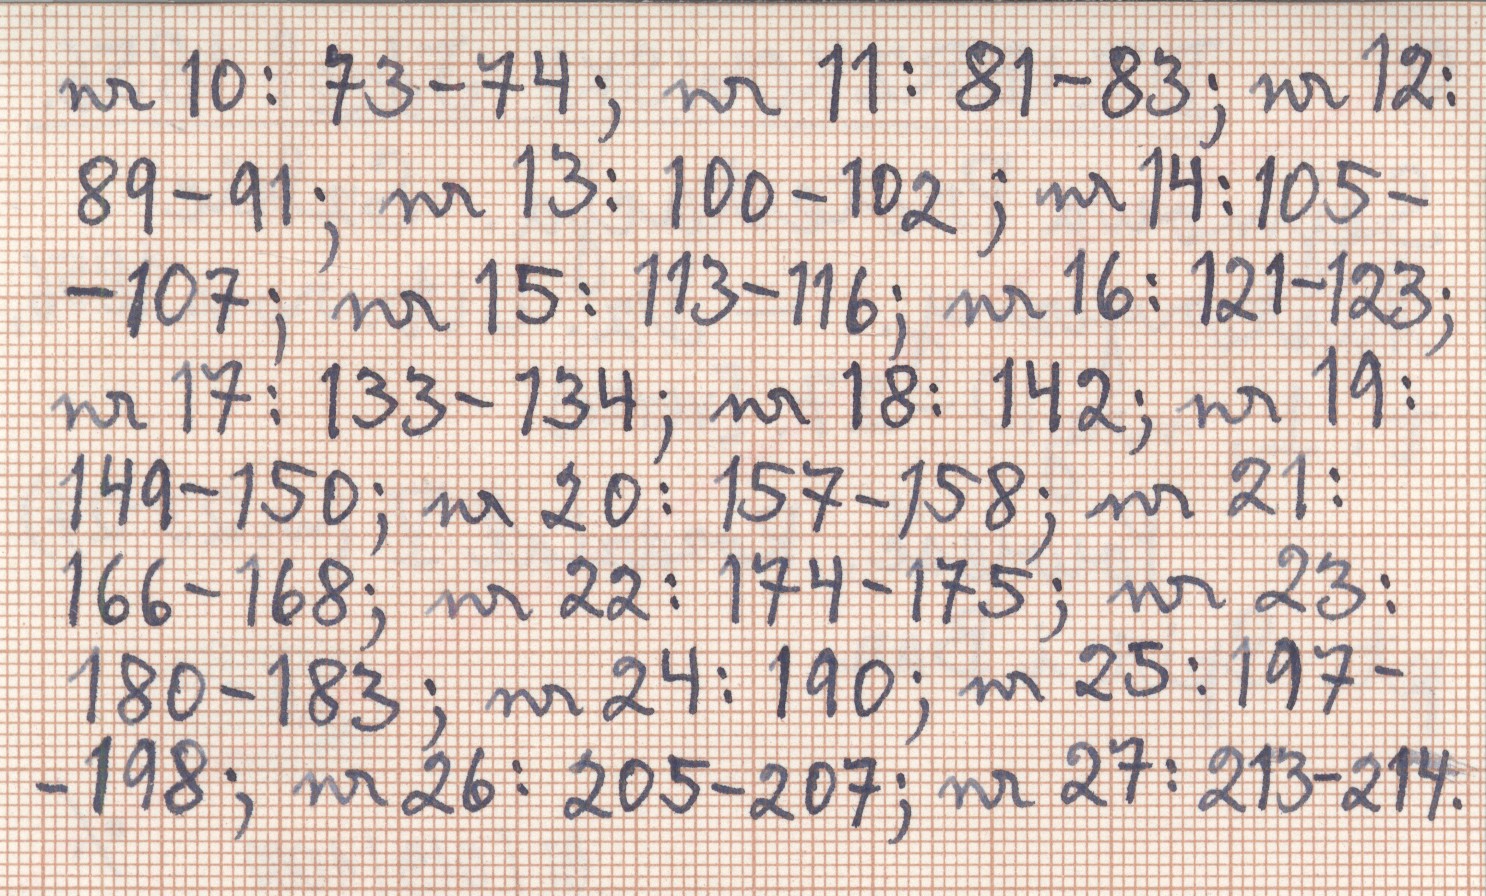 nr 10: 73-74; nr 11: 81-83; nr 12:
89-91; nr 13: 100-102; nr 14: 105-
-107; nr 15: 113-116; nr 16: 121-123;
nr 17: 133-134; nr 18: 142; nr 19:
149-150; nr 20: 157-158; nr 21:
166-168; nr 22: 174-175; nr 23:
180-183; nr 24: 190; nr 25: 197-
-198; nr 26: 205-207; nr 27: 213-214.